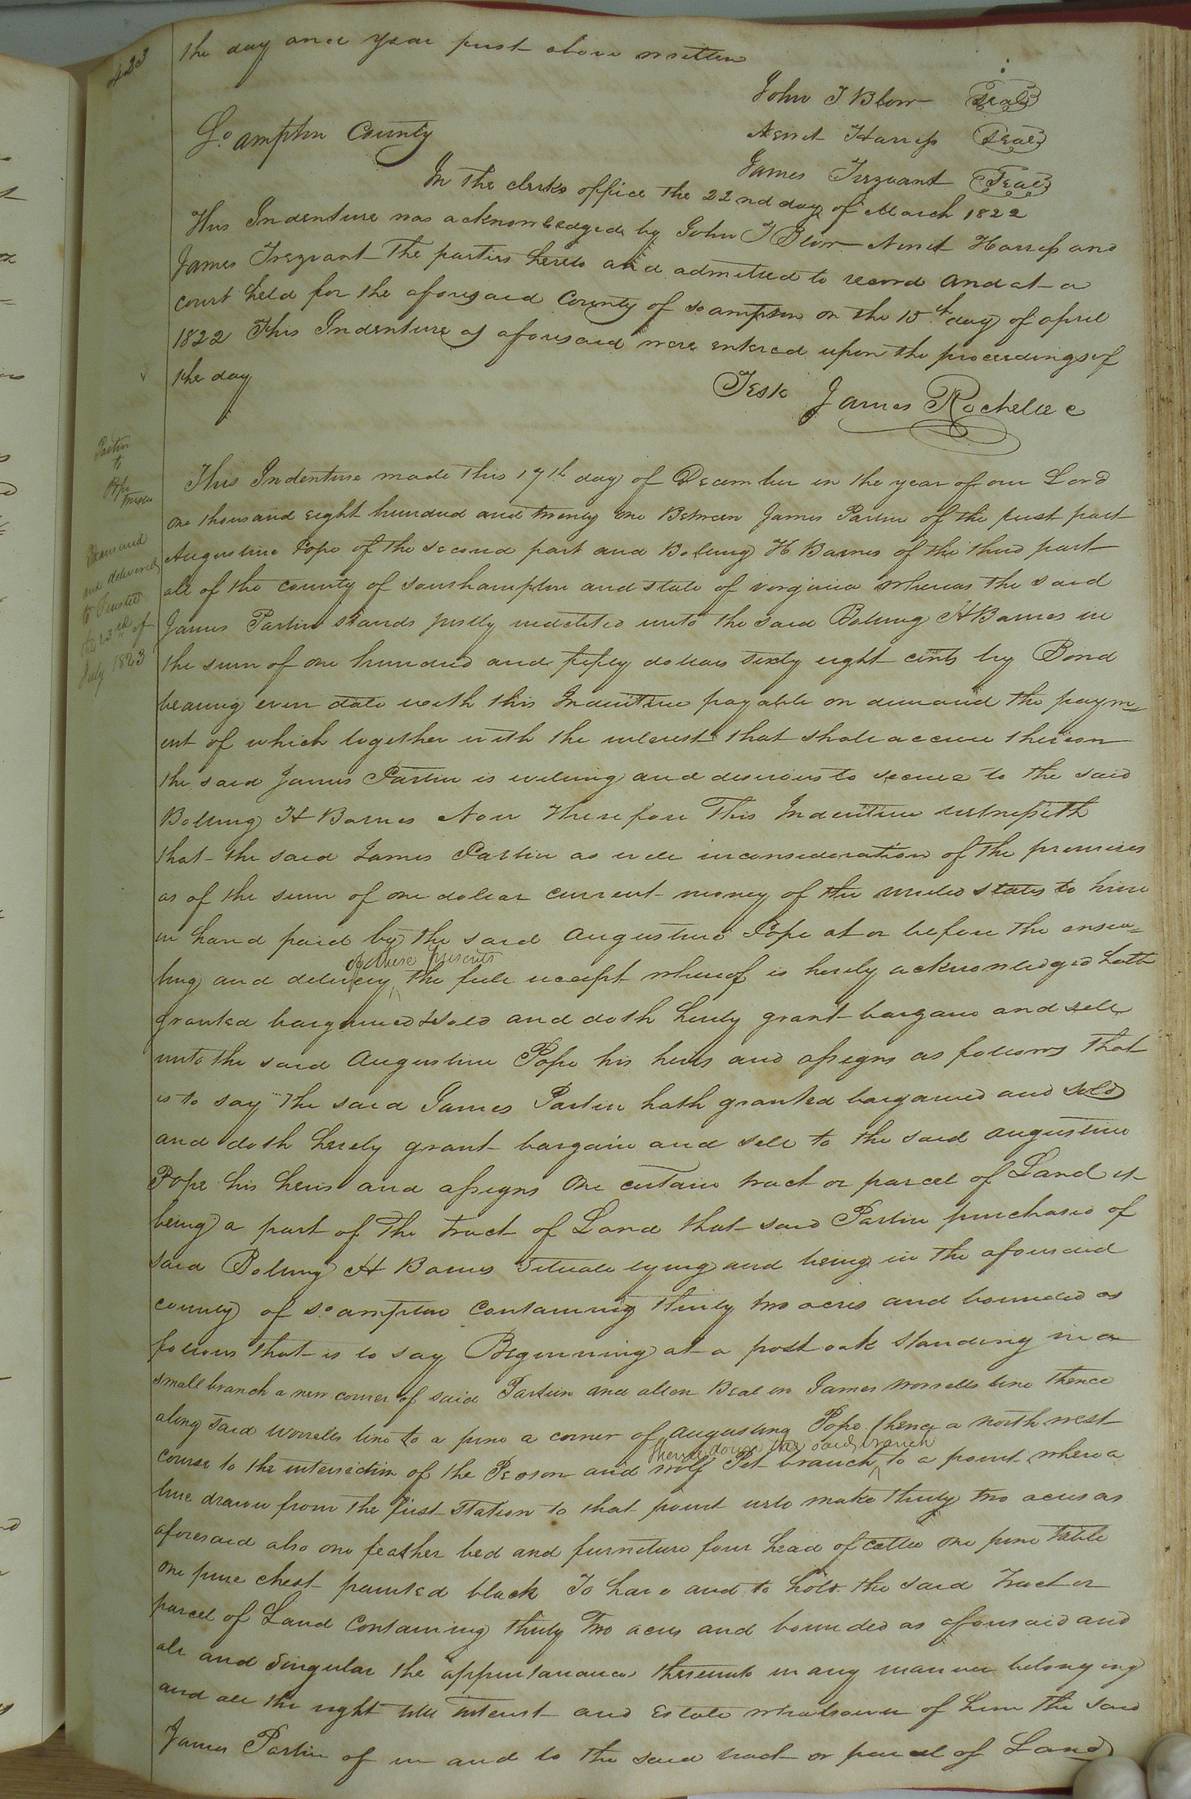 423
the day and year first above written
John T Blow Seal
So ampton County
Harriss Seal
James Trezvant Seal
In the clerks office the 22nd day of March 1822
This Indenture was acknowledged by John T Blow Harriss and
James Trezvant the parties hereto and admitted to record and at a
court held for the aforesaid County of So ampton on the 15th day of april
1822 This Indenture as aforesaid were entered upon the proceedings of
the day
Teste James Rochelle c
Partin
to
Pope
Trustee
Examined
and delivered
to Trustee
the 23rd of
July 1823
This Indenture made this 17th day of December in the year of our Lord
one thousand eight hundred and twenty one Between James Partin of the first part
Augustine Pope of the second part and Bolling H Barnes of the third part
all of the county of Southampton and state of virginia whereas the said
James Partin stands justly indebted unto the said Bolling H Barnes in
the sum of one hundred and fifty dollars sixty eight cents by Bond
bearing even date with this Indenture payable on demand the paym=
ent of which together with the interest that shall accrue thereon
the said James Partin is willing and desirous to secure to the said
Bolling H Barnes Now Therefore This Indenture witnesseth
that the said James Partin as well inconsideration of the premises
as of the sum of one dollar current money of the united states to him
in hand paid by the said Augustine Pope at or before the enseal=
of these presents
ling and delivery the full receipt whereof is hereby acknowledged hath
granted bargained & sold and doth hereby grant bargain and sell
unto the said Augustine Pope his heirs and assigns as follows That
is to say The said James Partin hath granted bargained and sold
and doth hereby grant bargain and sell to the said augustine
Pope his heirs and assigns one certain tract or parcel of Land it
being a part of the tract of Land that said Partin purchased of
said Bolling H Barnes Situate lying and being in the aforesaid
county of So ampton Containing thirty two acres and bounded as
follows that is to say Beginning at a post oak standing in a
small branch a new corner of said Partin and allen Beal on James Worrells line thence
along said worrells line to a pine a corner of augusting Pope thence a north west
thence down the said branch
course to the intersection of the Poson and wolf Pit branch to a point where a
line drawn from the first station to that point will make thirty two acres as
aforesaid also one feather bed and furniture four head of cattle one pine table
one pine chest painted black To have and to hold the said Tract or
parcel of Land Containing thirty Two acres and bounded as aforesaid and
all and Singular the appurtanances thereunto in any manner belonging
and all the right title interest and Estate whatsoever of him the said
James Partin of in and to the said tract or parcel of Land